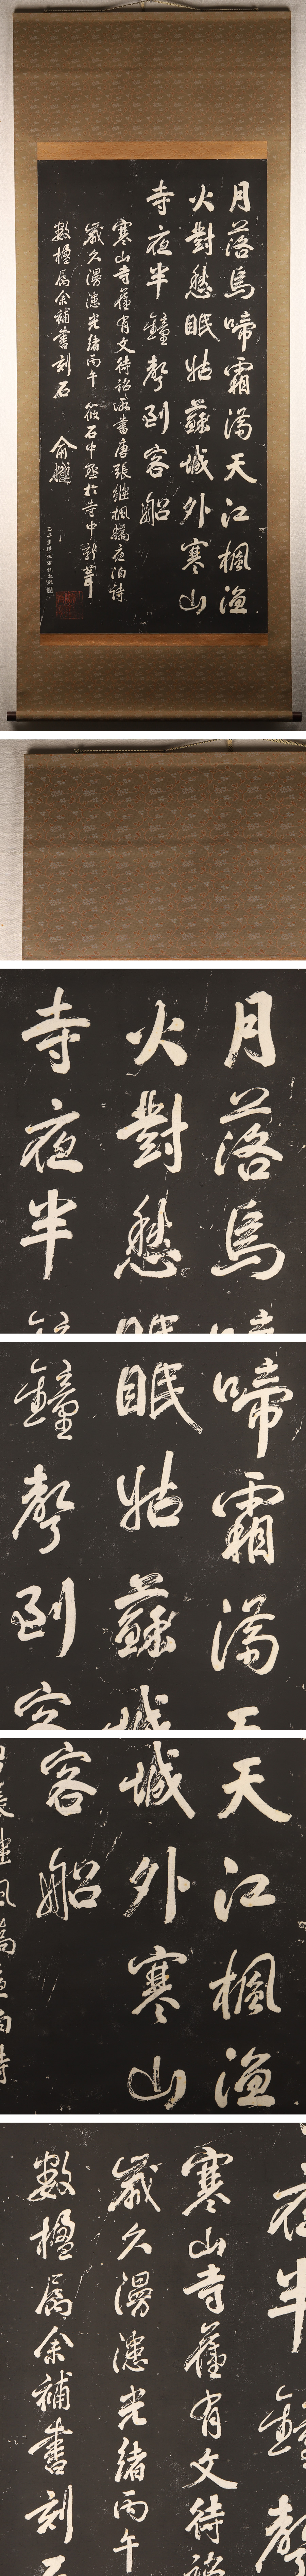 月落烏啼霜滿天江楓漁
火對愁眠姑蘇城外寒山
寺夜半鐘聲到客船
寒山寺舊有文待詔所書唐張繼楓橋夜泊詩
歲久漫漶光緒丙午筱石中丞於寺中新葺
數楹屬余補書刻石
俞樾
寺火月
夜對落
半愁烏
鐘眠啼
聲姑霜
到蘇滿
客城天
船外江
寒楓
山漁
寒山寺舊有文待
歲久漫漶光緒丙午
數楹屬余補書刻石